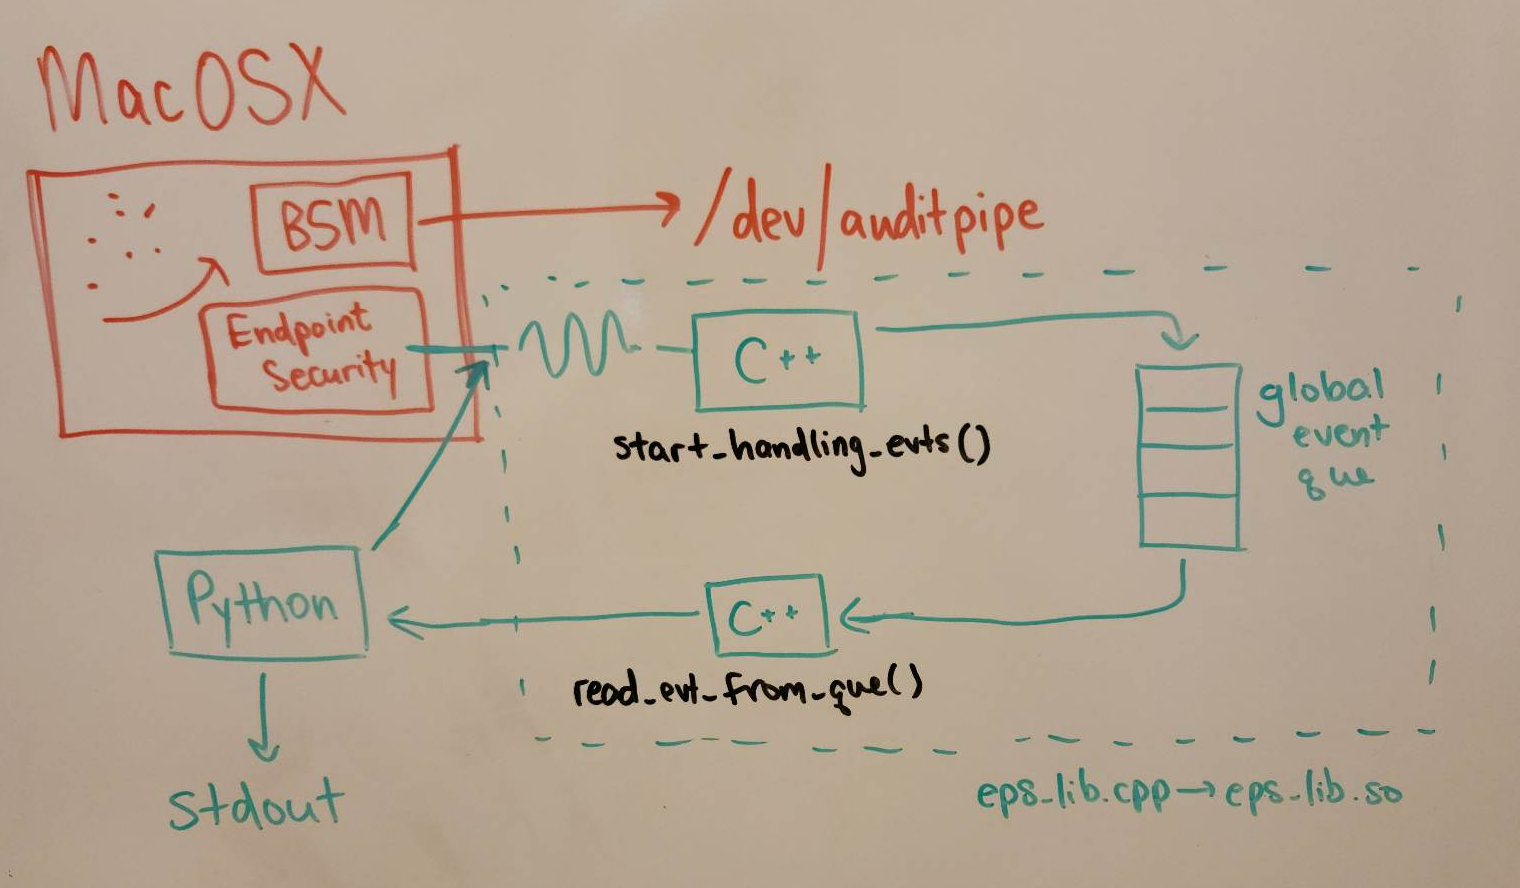 MacOSX
BSM
/dev/auditpipe
Endpoint
Security
C++
start_handling_evts()
global
event
que
Python
C++
read_evt_from_que()
stdout
eps_lib.cpp→eps_lib.so